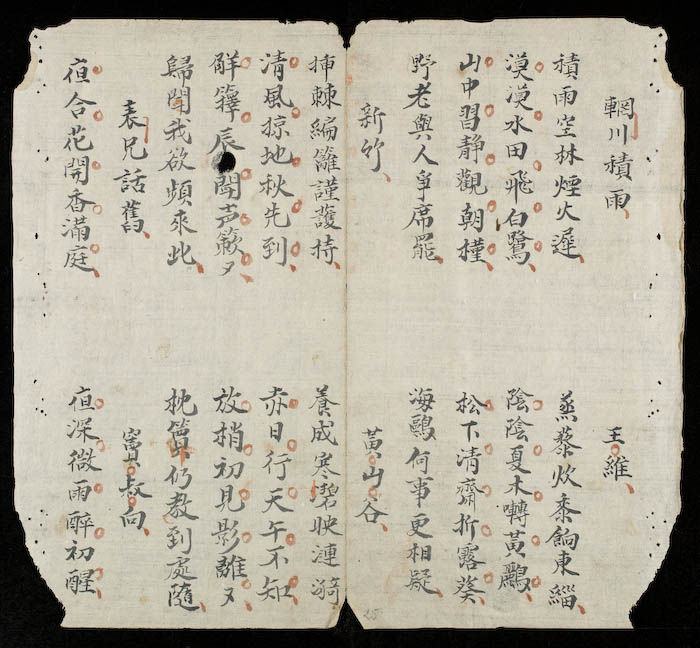 輞川積雨 王維
積雨空林煙火遲 蒸藜炊黍餉東緇
漠漠水田飛白鷺 陰陰夏木囀黃鸝
山中習静觀朝槿 松下清齋折露葵
野老與人爭席罷 海鷗何事更相疑
新竹 黃山谷
挿棘編籬謹護持 養成寒碧映漣漪
清風掠地秋先到 赤日行天午不知
觧籜辰聞声簌々 放梢初見影離々
歸聞我欲頻來此 枕簟仍教到處隨
表兄話舊 竇叔向
夜合花開香滿庭 夜深微雨醉初醒